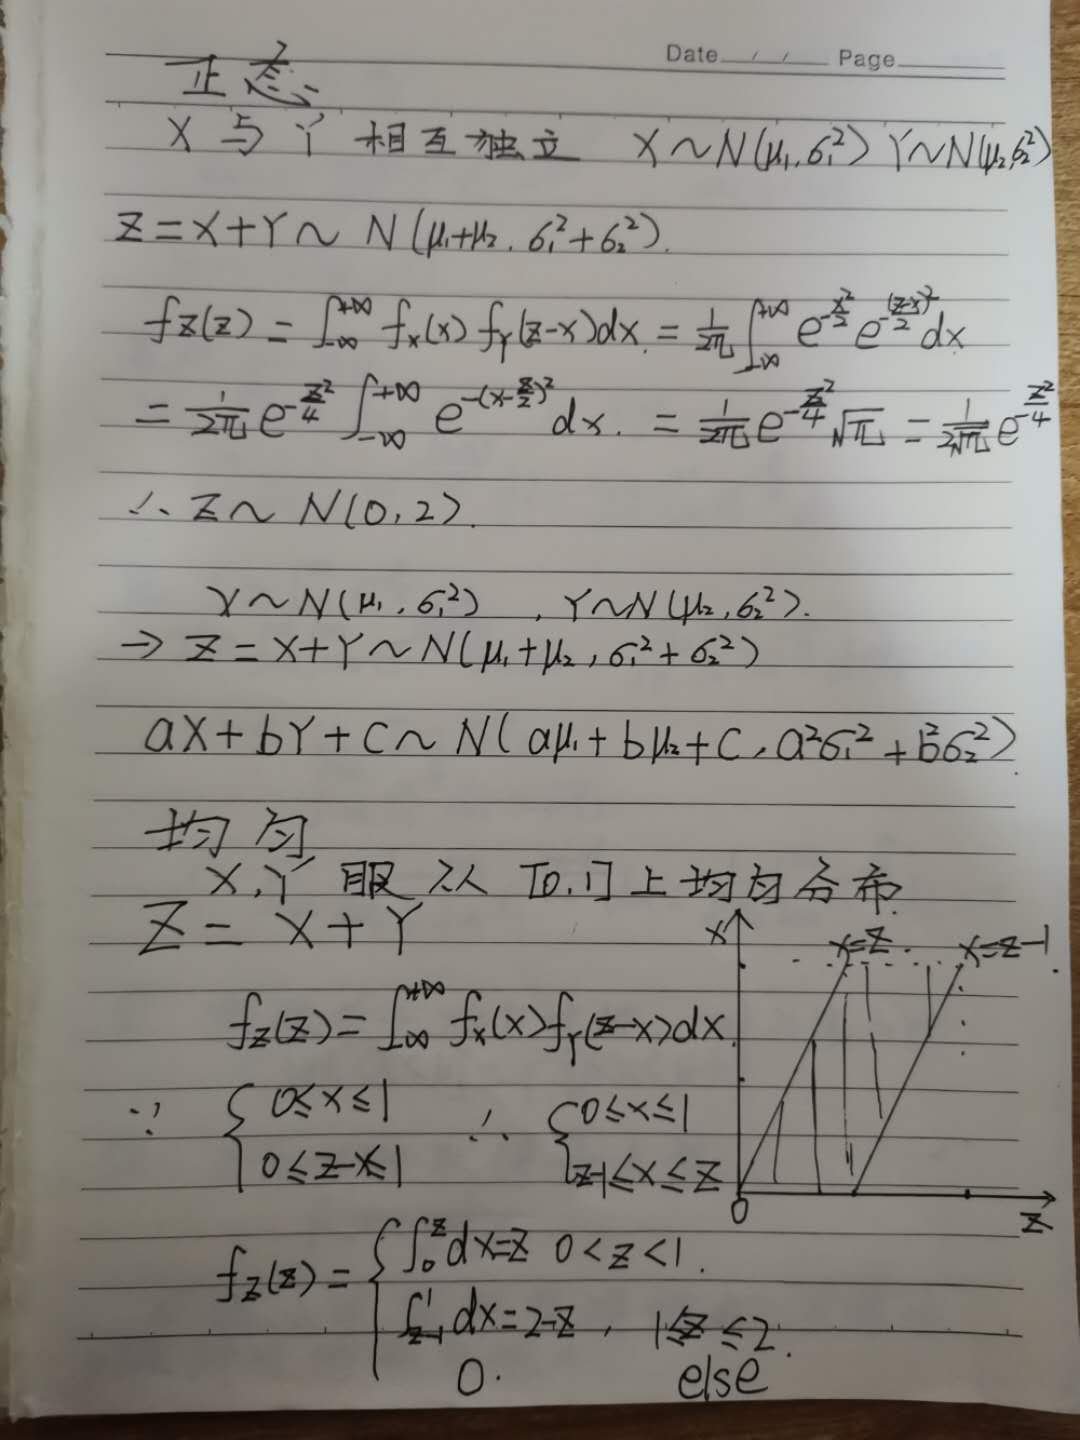 Date / / Page
正态
X与Y相互独立 X~N(μ₁,σ₁²) Y~N(μ₂,σ₂²)
Z=X+Y~N(μ₁+μ₂,σ₁²+σ₂²).
f_Z(z)=∫_{-∞}^{+∞} f_X(x)f_Y(z-x)dx.=\frac{1}{2π}∫_{-∞}^{+∞} e^{-\frac{x²}{2}} e^{-\frac{(z-x)²}{2}} dx
=\frac{1}{2π}e^{-\frac{z²}{4}}∫_{-∞}^{+∞} e^{-(x-\frac{z}{2})²}dx.=\frac{1}{2π}e^{-\frac{z²}{4}}√π=\frac{1}{2√π}e^{-\frac{z²}{4}}
∴Z~N(0,2).
X~N(μ₁,σ₁²),Y~N(μ₂,σ₂²).
→Z=X+Y~N(μ₁+μ₂,σ₁²+σ₂²)
aX+bY+C~N(aμ₁+bμ₂+C,a²σ₁²+b²σ₂²)
均匀
X,Y服从[0,1]上均匀分布.
Z=X+Y
x x=z x=z-1
f_Z(z)=∫_{-∞}^{+∞} f_X(x)f_Y(z-x)dx.
∵ { 0≤x≤1 ∴ { 0≤x≤1
0≤z-x≤1 z-1≤x≤z
0 z
f_Z(z)= { ∫_0^z dx=z 0<z<1.
∫_{z-1}^1 dx=2-z, 1≤z≤2.
0. else